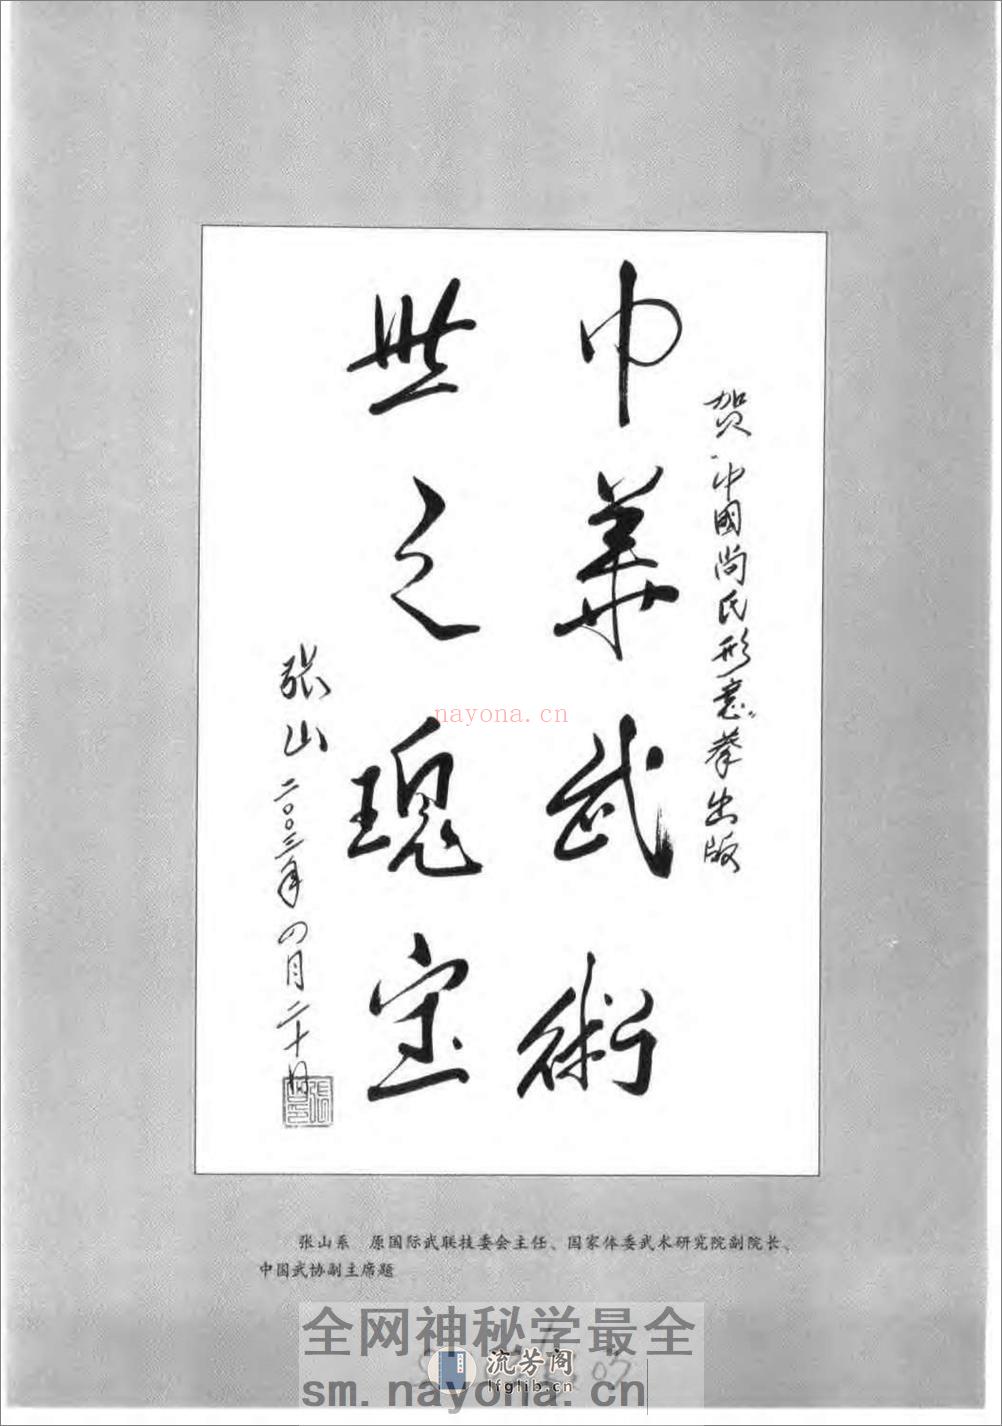 贺"中國尚氏形意"拳出版
中華武術
世之瑰宝
张山
二〇〇三年四月二十日
张山系 原国际武联技委会主任、国家体委武术研究院副院长、
中国武协副主席题
nayona.cn
全网神秘学最全
流芳阁
lfglib.cn
sm.nayona.cn